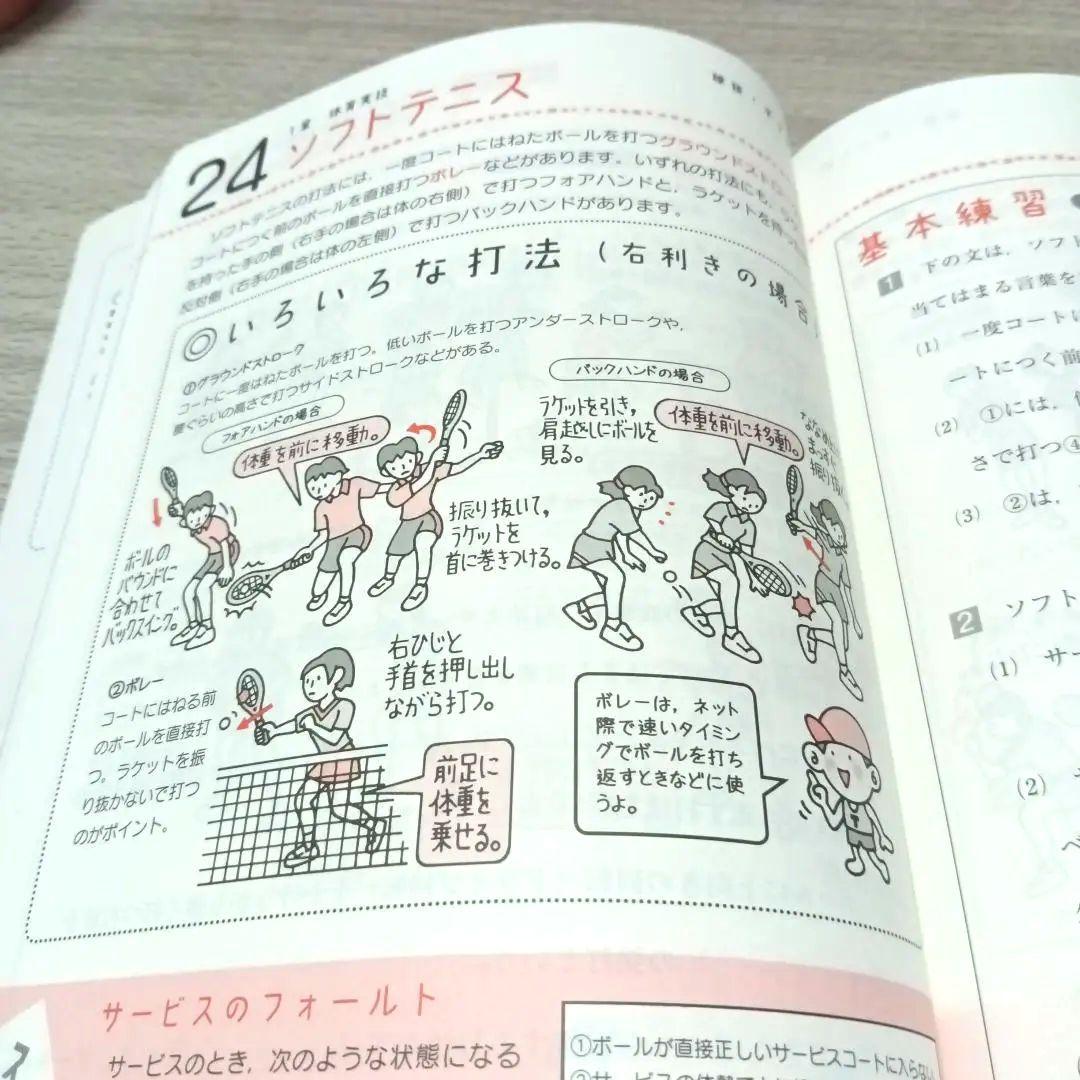 24
1章 体育実技
ソフトテニス
ソフトテニスの打法には，一度コートにはねたボールを打つグラウンドストロ
コートにつく前のボールを直接打つボレーなどがあります。いずれの打法にも，ラ
を持った手の側（右手の場合は体の右側）で打つフォアハンドと，ラケットを持っ
反対側（右手の場合は体の左側）で打つバックハンドがあります。
◎いろいろな打法（右利きの場合
①グラウンドストローク
コートに一度はねたボールを打つ。低いボールを打つアンダーストロークや，
腰ぐらいの高さで打つサイドストロークなどがある。
フォアハンドの場合
体重を前に移動。
ボールの
バウンドに
合わせて
バックスイング。
振り抜いて，
ラケットを
首に巻きつける。
バックハンドの場合
ラケットを引き，
肩越しにボールを
見る。
体重を前に移動。
②ボレー
コートにはねる前
のボールを直接打
つ。ラケットを振
り抜かないで打つ
のがポイント。
右ひじと
手首を押し出し
ながら打つ。
前足に
体重を
乗せる。
ボレーは，ネット
際で速いタイミン
グでボールを打ち
返すときなどに使
うよ。
サービスのフォールト
サービスのとき，次のような状態になる
①ボールが直接正しいサービスコートに入らない
基本練習
1 下の文は，ソフト
当てはまる言葉を
(1) 一度コートに
ートにつく前
(2) ①には，
さで打つ④
(3) ②は，
2 ソフト
(1) サー
(2)